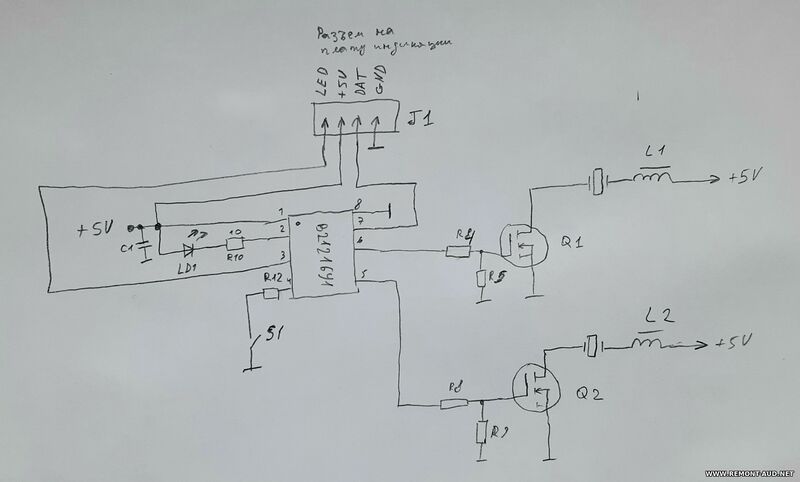 Разъем на
плату индикации
LED
+5V
DAT
GND
J1
+5V
C1
LD1
10
R10
1
2
3
4
8
7
6
5
R12
S1
R4
R5
Q1
L1
+5V
R8
R9
Q2
L2
+5V
WWW.REMONT-AUD.NET